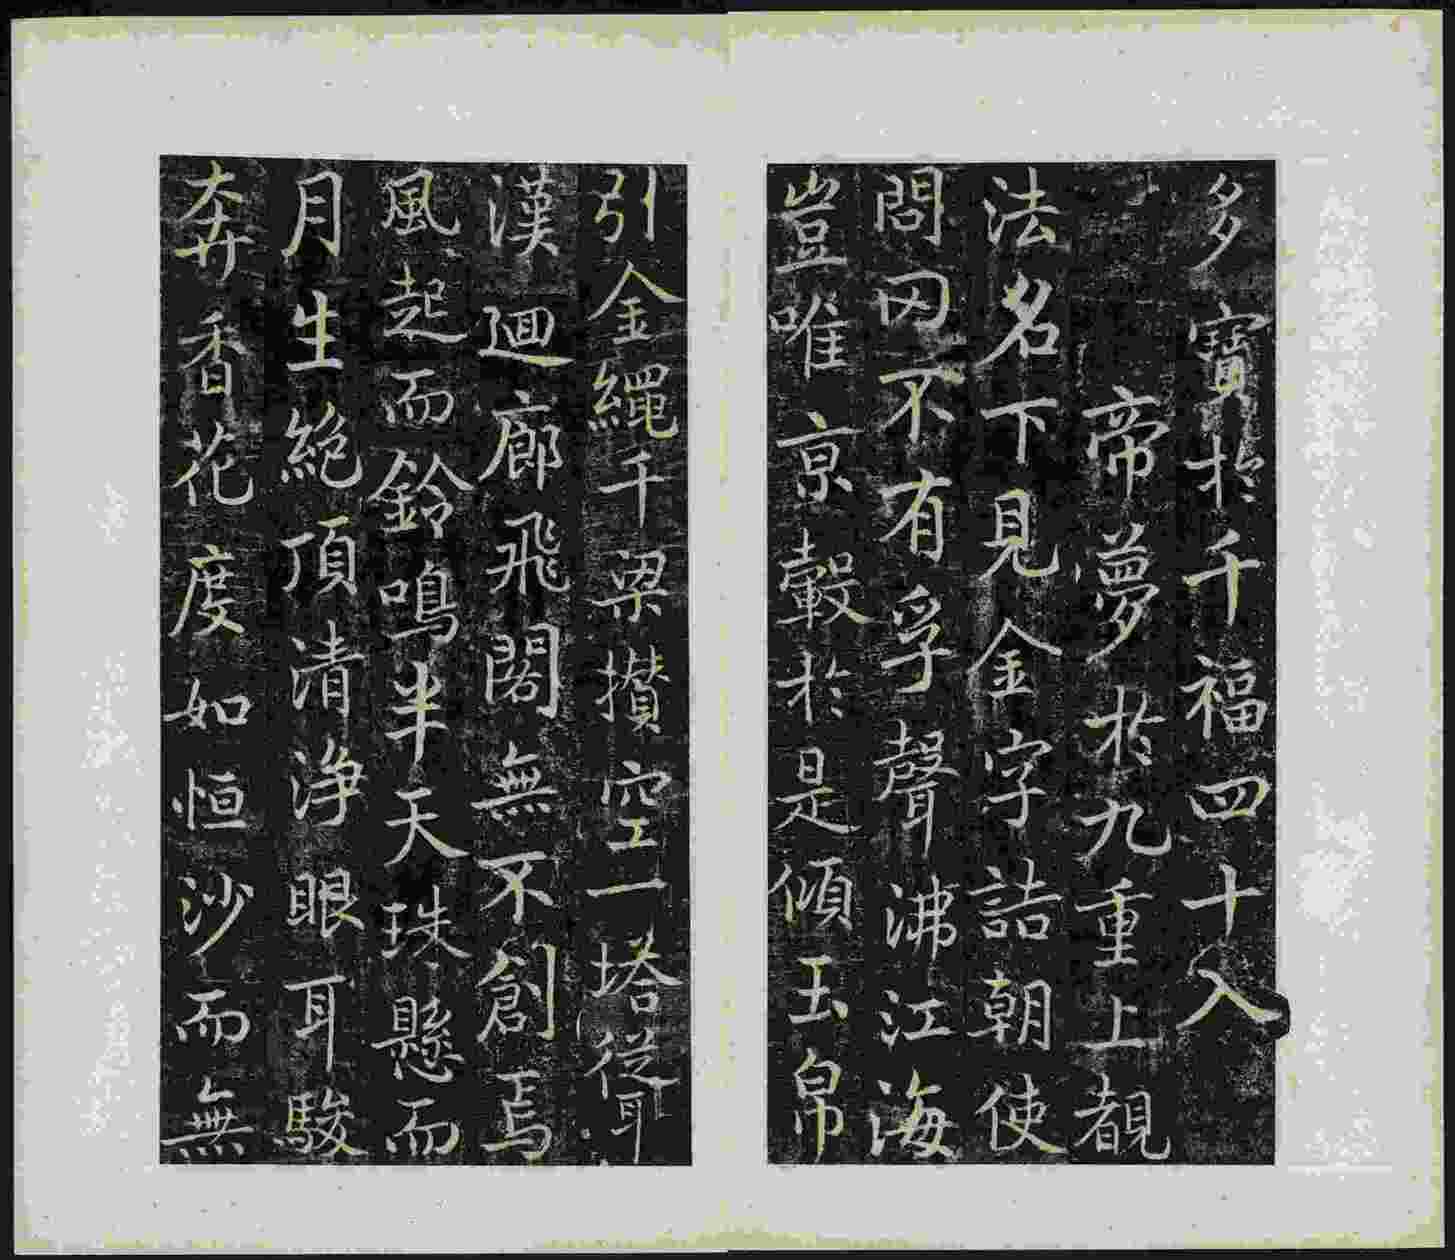 多寶於千福四十入
帝夢於九重上覩
法名下見金字詰朝使
問罔不有孚聲沸江海
豈唯京轂於是傾玉帛
引金繩千梁攢空一塔從
漢迴廊飛閣無不創焉
風起而鈴鳴半天珠懸而
月生絶頂清淨眼耳駿
奔香花度如恒沙而無